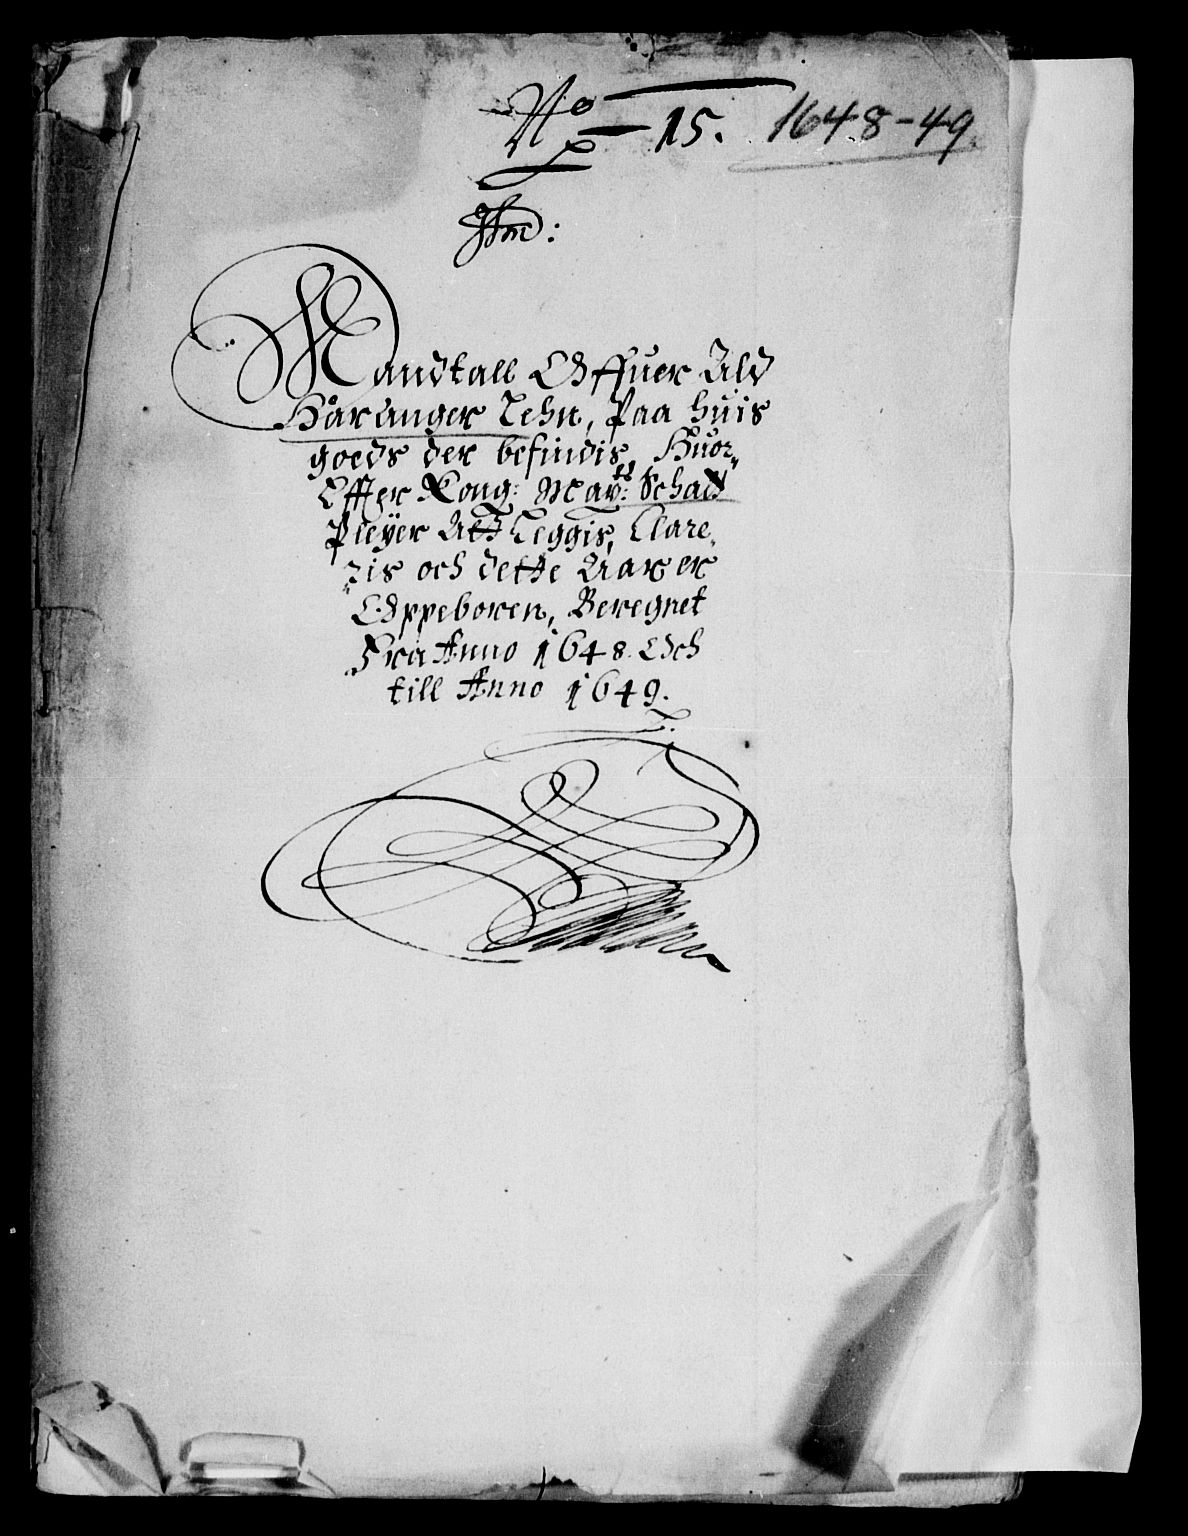 No 15. 1648-49
Mandtall Offuer Ald
Hardanger Lehn, Paa huis
goeds der befindis, Huor„
Effter Kong: May:tt Schatt
Pleyer Att Leggis, Clare„
„ris och dette Aar er
Oppeboren, Beregnet
Fra Anno 1648. Och
till Anno 1649.